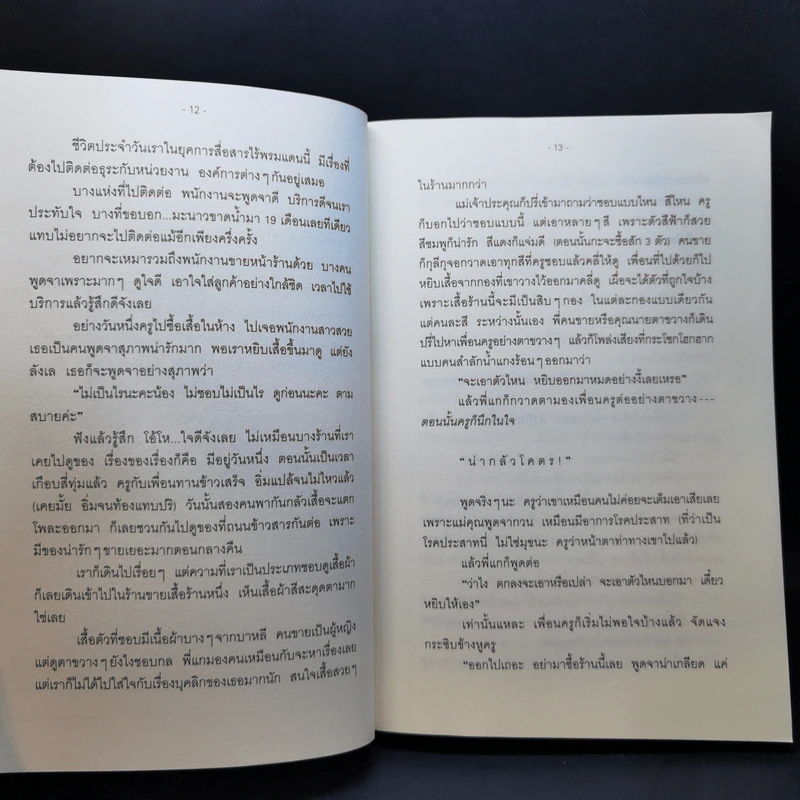 - 12 -
ชีวิตประจำวันเราในยุคการสื่อสารไร้พรมแดนนี้ มีเรื่องที่
ต้องไปติดต่อธุระกับหน่วยงาน องค์การต่างๆกันอยู่เสมอ
บางแห่งที่ไปติดต่อ พนักงานจะพูดจาดี บริการดีจนเรา
ประทับใจ บางที่ขอบอก...มะนาวขาดน้ำมา 19 เดือนเลยทีเดียว
แทบไม่อยากจะไปติดต่อแม้อีกเพียงครึ่งครั้ง
อยากจะเหมารวมถึงพนักงานขายหน้าร้านด้วย บางคน
พูดจาเพราะมากๆ ดูใจดี เอาใจใส่ลูกค้าอย่างใกล้ชิด เวลาไปใช้
บริการแล้วรู้สึกดีจังเลย
อย่างวันหนึ่งครูไปซื้อเสื้อในห้าง ไปเจอพนักงานสาวสวย
เธอเป็นคนพูดจาสุภาพน่ารักมาก พอเราหยิบเสื้อขึ้นมาดู แต่ยัง
ลังเล เธอก็จะพูดจาอย่างสุภาพว่า
“ไม่เป็นไรนะคะน้อง ไม่ชอบไม่เป็นไร ดูก่อนนะคะ ตาม
สบายค่ะ”
ฟังแล้วรู้สึก โอ้โห...ใจดีจังเลย ไม่เหมือนบางร้านที่เรา
เคยไปดูของ เรื่องของเรื่องก็คือ มีอยู่วันหนึ่ง ตอนนั้นเป็นเวลา
เกือบสี่ทุ่มแล้ว ครูกับเพื่อนทานข้าวเสร็จ อิ่มแปล้จนไม่ไหวแล้ว
(เคยมั้ย อิ่มจนท้องแทบปริ) วันนั้นสองคนพากันกลัวเสื้อจะแตก
โพละออกมา ก็เลยชวนกันไปดูของที่ถนนข้าวสารกันต่อ เพราะ
มีของน่ารักๆขายเยอะมากตอนกลางคืน
เราก็เดินไปเรื่อยๆ แต่ความที่เราเป็นประเภทชอบดูเสื้อผ้า
ก็เลยเดินเข้าไปในร้านขายเสื้อร้านหนึ่ง เห็นเสื้อผ้าสีสะดุดตามาก
ใช่เลย
เสื้อตัวที่ชอบมีเนื้อผ้าบางๆจากบาหลี คนขายเป็นผู้หญิง
แต่ดูตาขวางๆยังไงชอบกล พี่แกมองคนเหมือนกับจะหาเรื่องเลย
แต่เราก็ไม่ได้ไปใส่ใจกับเรื่องบุคลิกของเธอมากนัก สนใจเสื้อสวยๆ
- 13 -
ในร้านมากกว่า
แม่เจ้าประคุณก็ปรี่เข้ามาถามว่าชอบแบบไหน สีไหน ครู
ก็บอกไปว่าชอบแบบนี้ แต่เอาหลายๆสี เพราะตัวสีฟ้าก็สวย
สีชมพูก็น่ารัก สีแดงก็แจ่มดี (ตอนนั้นกะจะซื้อสัก 3 ตัว) คนขาย
ก็กุลีกุจอกวาดเอาทุกสีที่ครูชอบแล้วคลี่ให้ดู เพื่อนที่ไปด้วยก็ไป
หยิบเสื้อจากกองที่เขาวางไว้ออกมาคลี่ดู เผื่อจะได้ตัวที่ถูกใจบ้าง
เพราะเสื้อร้านนี้จะมีเป็นสิบๆกอง ในแต่ละกองแบบเดียวกัน
แต่คนละสี ระหว่างนั้นเอง พี่คนขายหรือคุณนายตาขวางก็เดิน
ปรี่ไปหาเพื่อนครูอย่างตาขวางๆ แล้วก็โพล่งเสียงที่กระโชกโฮกฮาก
แบบคนสำลักน้ำแกงร้อนๆออกมาว่า
“จะเอาตัวไหน หยิบออกมาหมดอย่างงี้เลยเหรอ”
แล้วพี่แกก็กวาดตามองเพื่อนครูต่ออย่างตาขวาง---
ตอนนั้นครูก็นึกในใจ
“น่ากลัวโคตร!”
พูดจริงๆนะ ครูว่าเขาเหมือนคนไม่ค่อยจะเต็มเอาเสียเลย
เพราะแม่คุณพูดจากวน เหมือนมีอาการโรคประสาท (ที่ว่าเป็น
โรคประสาทนี่ ไม่ใช่มุขนะ ครูว่าหน้าตาท่าทางเขาไปแล้ว)
แล้วพี่แกก็พูดต่อ
“ว่าไง ตกลงจะเอาหรือเปล่า จะเอาตัวไหนบอกมา เดี๋ยว
หยิบให้เอง”
เท่านั้นแหละ เพื่อนครูก็เริ่มไม่พอใจบ้างแล้ว จัดแจง
กระซิบข้างหูครู
“ออกไปเถอะ อย่ามาซื้อร้านนี้เลย พูดจาน่าเกลียด แค่